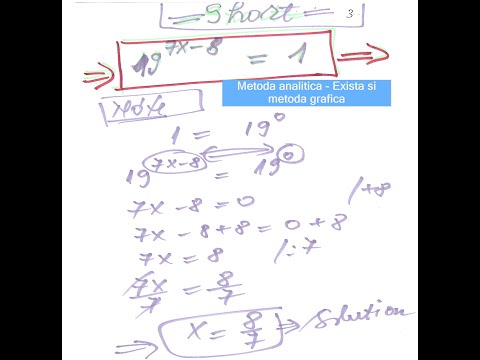 =Short= 3
⇒ 19^(7x-8) = 1 ⇒
Metoda analitica - Exista si
metoda grafica
Note
1 = 19^0
19^(7x-8) = 19^0
7x - 8 = 0 /+8
7x - 8 + 8 = 0 + 8
7x = 8 /:7
7x/7 = 8/7
⇒ x = 8/7 ⇒ Solution